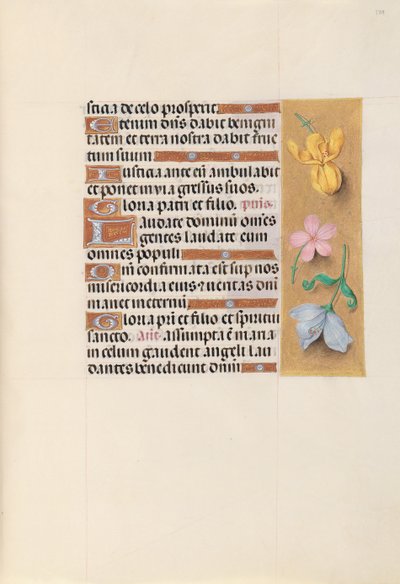 sticia de celo prospexit.
Etenim dñs dabit benigni
tatem et terra nostra dabit fruc
tum suum.
Iusticia ante eũ ambulabit
et ponet in via gressus suos.
Gloria patri et filio. p̃us.
Laudate dominũ omẽs
gentes laudate eum
omnes populi
Qm̃ confirmata est sup nos
misericordia eius &ueritas dnĩ
manet in eternũ.
Gloria pr̃i et filio et spiritui
sancto. Añt. assumpta ẽ maria
in celum gaudent angeli lau
dantes bẽnedicunt dnũm